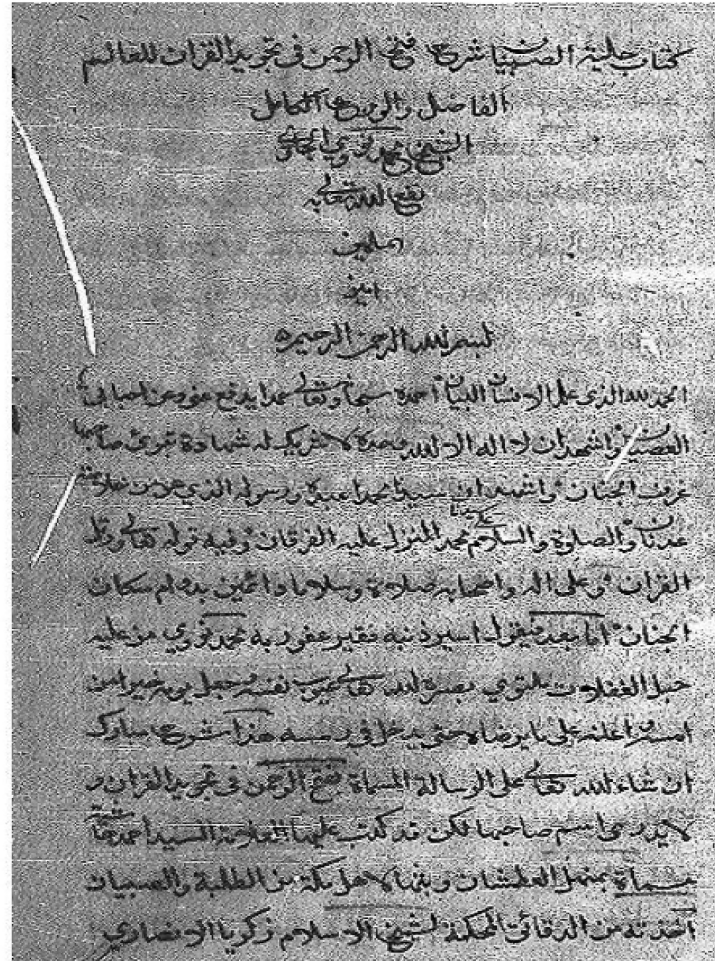 كتاب حلية الصبيان شرح فتح الرحمن في تجويد القران للعالم
الفاضل والورع الكامل
الشيخ محمد نووي الجاوي
نفع الله تعالى به
امين
امين
بسم الله الرحمن الرحيم
الحمد لله الذي علم الانسان البيان احمده سبحانه وتعالى حمدا يدفع عنو وعن احبابي
العصيان واشهد ان لا اله الا الله وحده لا شريك له شهادة تبوئ صاحبها
غرف الجنان واشهد ان سيدنا محمدا عبده ورسوله الذي هو من خلاصة
عدنان والصلوة والسلام على سيدنا محمد المنزل عليه الفرقان وفيه قوله تعالى ورتل
القران وعلى اله واصحابه صلاة وسلاما دائمين بدوام سكان
الجنان اما بعد فيقول اسير ذنبه فقير عفو ربه محمد نووي من عليه
حبل الغفلات ملتوي بصره الله تعالى عيوب نفسه وجعل يومه خيرا من
امسه واعنه على ما يرضاه حتى يدخل في رمسه هذا شرح مبارك
ان شاء الله تعالى على الرسالة المسماة فتح الرحمن في تجويد القران و
لا يدرى اسم صاحبها لكن قد كتب عليها العلامة السيد احمد حاشية
مسماة بمنهل العطشان وبثها لاهل مكة من الطلبة والصبيان
اخذته من الدقائق المحكمة لشيخ الاسلام زكريا الانصاري